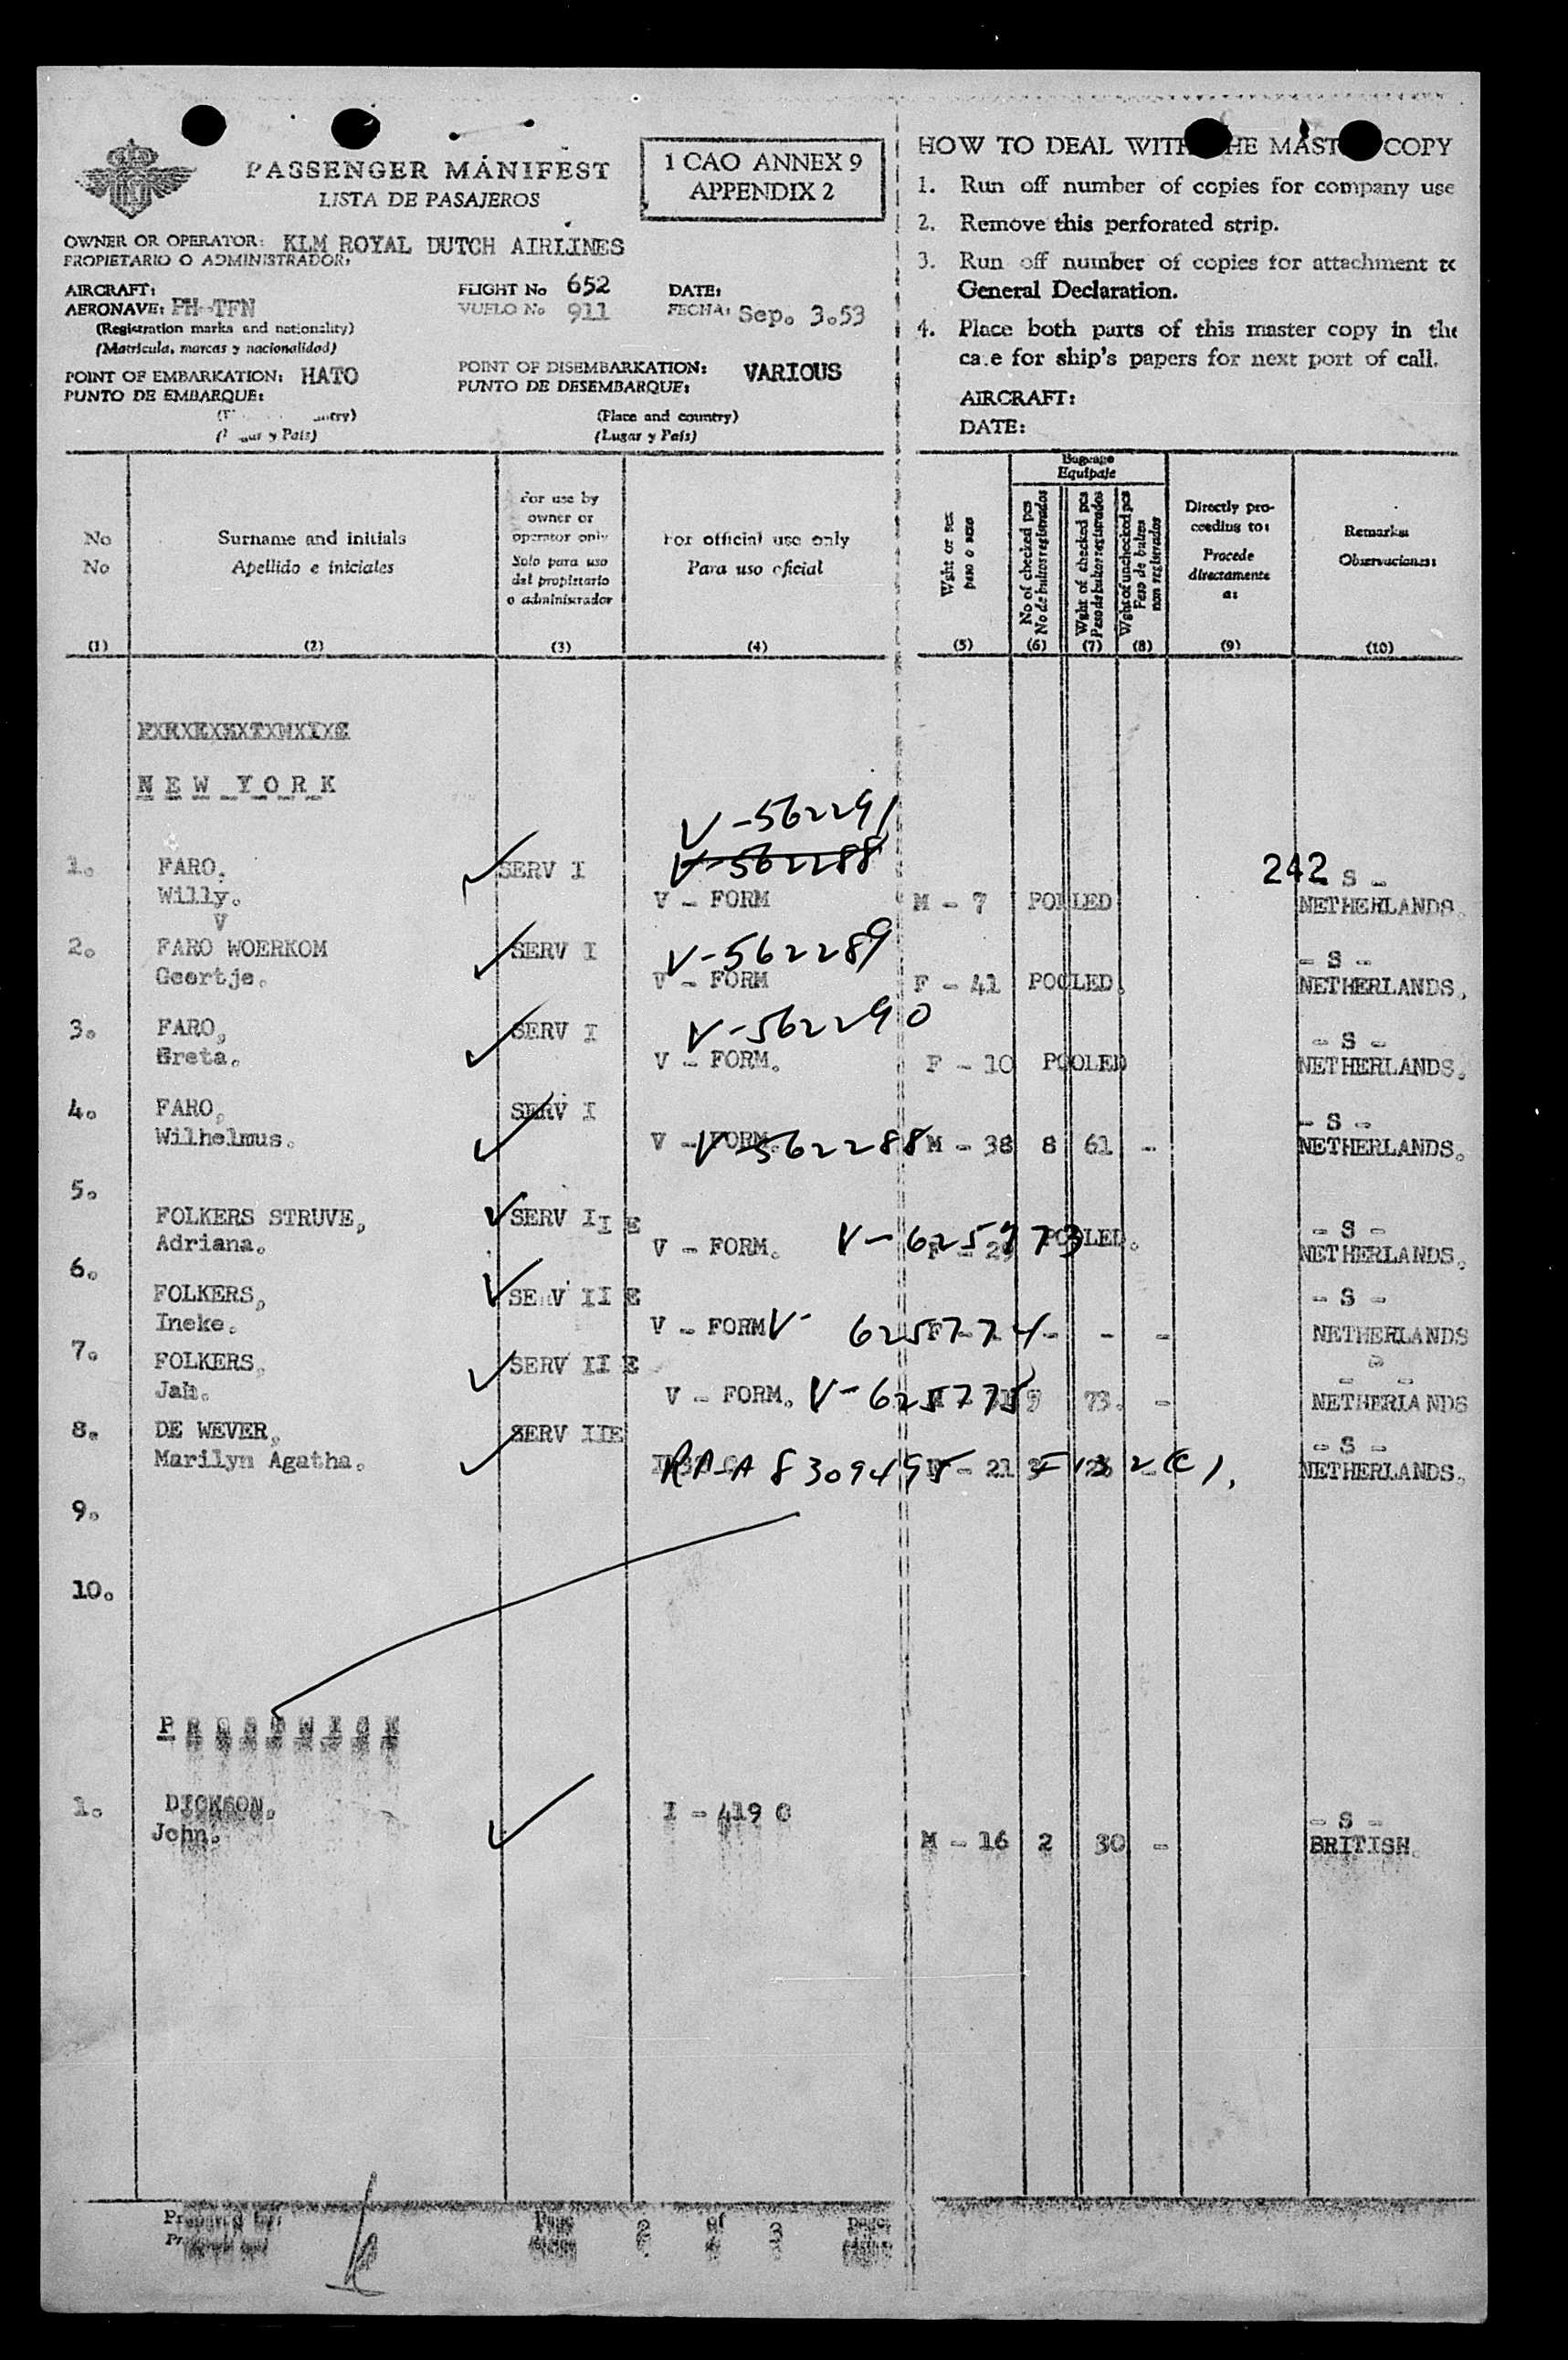 PASSENGER MANIFEST
LISTA DE PASAJEROS
1 CAO ANNEX 9
APPENDIX 2
OWNER OR OPERATOR: KLM ROYAL DUTCH AIRLINES
PROPIETARIO O ADMINISTRADOR:
AIRCRAFT:
AERONAVE: PH-TFN
(Registration marks and nationality)
(Matrícula, marcas y nacionalidad)
FLIGHT No 652
VUELO No 911
DATE:
FECHA: Sep. 3.53
POINT OF EMBARKATION: HATO
PUNTO DE EMBARQUE:
POINT OF DISEMBARKATION: VARIOUS
PUNTO DE DESEMBARQUE:
(Place and country)
(Lugar y País)
HOW TO DEAL WITH THE MASTER COPY
1. Run off number of copies for company use
2. Remove this perforated strip.
3. Run off number of copies for attachment to
General Declaration.
4. Place both parts of this master copy in the
case for ship's papers for next port of call.
AIRCRAFT:
DATE:
No
No
(1)
Surname and initials
Apellido e iniciales
(2)
For use by
owner or
operator only
Solo para uso
del propietario
o administrador
(3)
For official use only
Para uso oficial
(4)
Wght or sex
peso o sexo
(5)
Baggage
Equipaje
No of checked pcs
No de bultos registrados
(6)
Wght of checked pcs
Peso de bultos registrados
(7)
Wght of unchecked pcs
Peso de bultos
non registrados
(8)
Directly pro-
ceeding to:
Procede
directamente
a:
(9)
Remarks:
Observaciones:
(10)
NEW YORK
V-562291
V-562288
1. FARO. SERV I 242 - S -
Willy. V - FORM M - 7 POOLED NETHERLANDS.
V
2. FARO WOERKOM SERV I V-562289 - S -
Geertje. V - FORM F - 41 POOLED. NETHERLANDS.
3. FARO, SERV I V-562290 - S -
Greta. V - FORM. F - 10 POOLED NETHERLANDS.
4. FARO, SERV I - S -
Wilhelmus. V - FORM. V-562288 M - 38 8 61 - NETHERLANDS.
5.
FOLKERS STRUVE, SERV II E - S -
Adriana. V - FORM. V-625773 POOLED. NETHERLANDS.
6.
FOLKERS, SERV II E - S -
Ineke. V - FORM V-625774 - - - NETHERLANDS
7.
FOLKERS, SERV II E
Jan. V - FORM. V-625775 73. - NETHERLANDS
8. DE WEVER, SERV IIE - S -
Marilyn Agatha. - 21 NETHERLANDS.
9.
10.
PRESTWICK
1. DICKSON, I - 419 C - S -
John. M - 16 2 30 - BRITISH.
Prepared by:
Page 2 of 3 pages